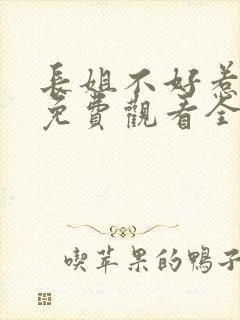 長姐不好惹
免費觀看全
喫苹果的鴨子